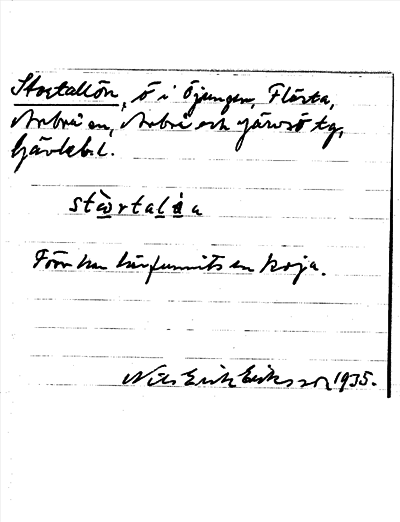 Stortallön, ö i Öjungen, Flästa,
Arbrå sn, Arbrå och Järvsö tg,
Gävlebl.
stòrtaläa
Förr har här funnits en koja.
Nils Erik Eriksson 1935.